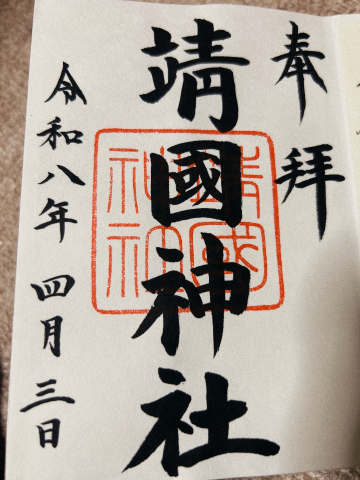 奉拝
靖國神社
靖國
神社
令和八年 四月三日